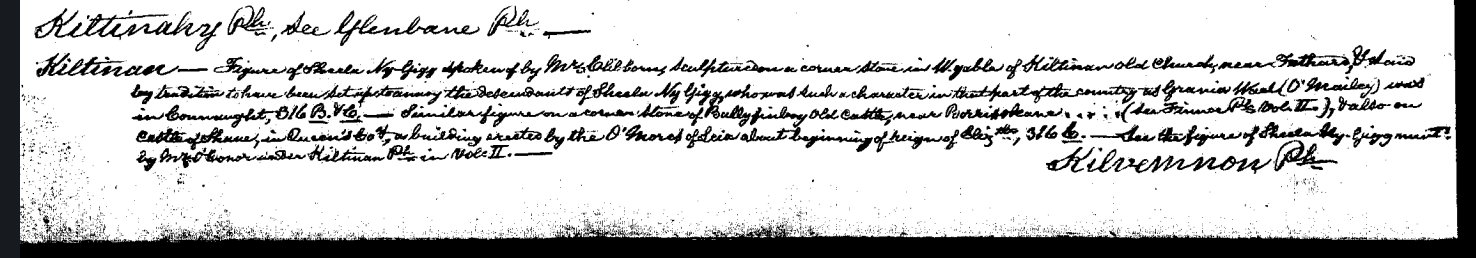 Kiltinahy Ph., See Glenbane Ph. —
Kiltinan — Figure of Sheela Ny Gigg spoken of by Mr. Clibborn, sculptured on a corner stone in W. gable of Kiltinan Old Church, near Fethard, & said
by tradition to have been set up to annoy the descendants of Sheela Ny Gigg, who was such a character in that part of the country as Grania Weel (O'Mailey) was
in Connaught, 316 B. & C. — Similar figure on a corner stone of Ballyfinboy Old Castle, near Borrisokane .... (See Finnoe Ph. Vol. II.), & also on
Castle of Shane, in Queen's Co., a building erected by the O'Mores of Leix about beginning of reign of Eliz., 316 C. — See the figure of Sheela Ny-Gigg
by Mr. O'Conor under Kiltinan Ph. in Vol. II. —
Kilvemnon Ph.